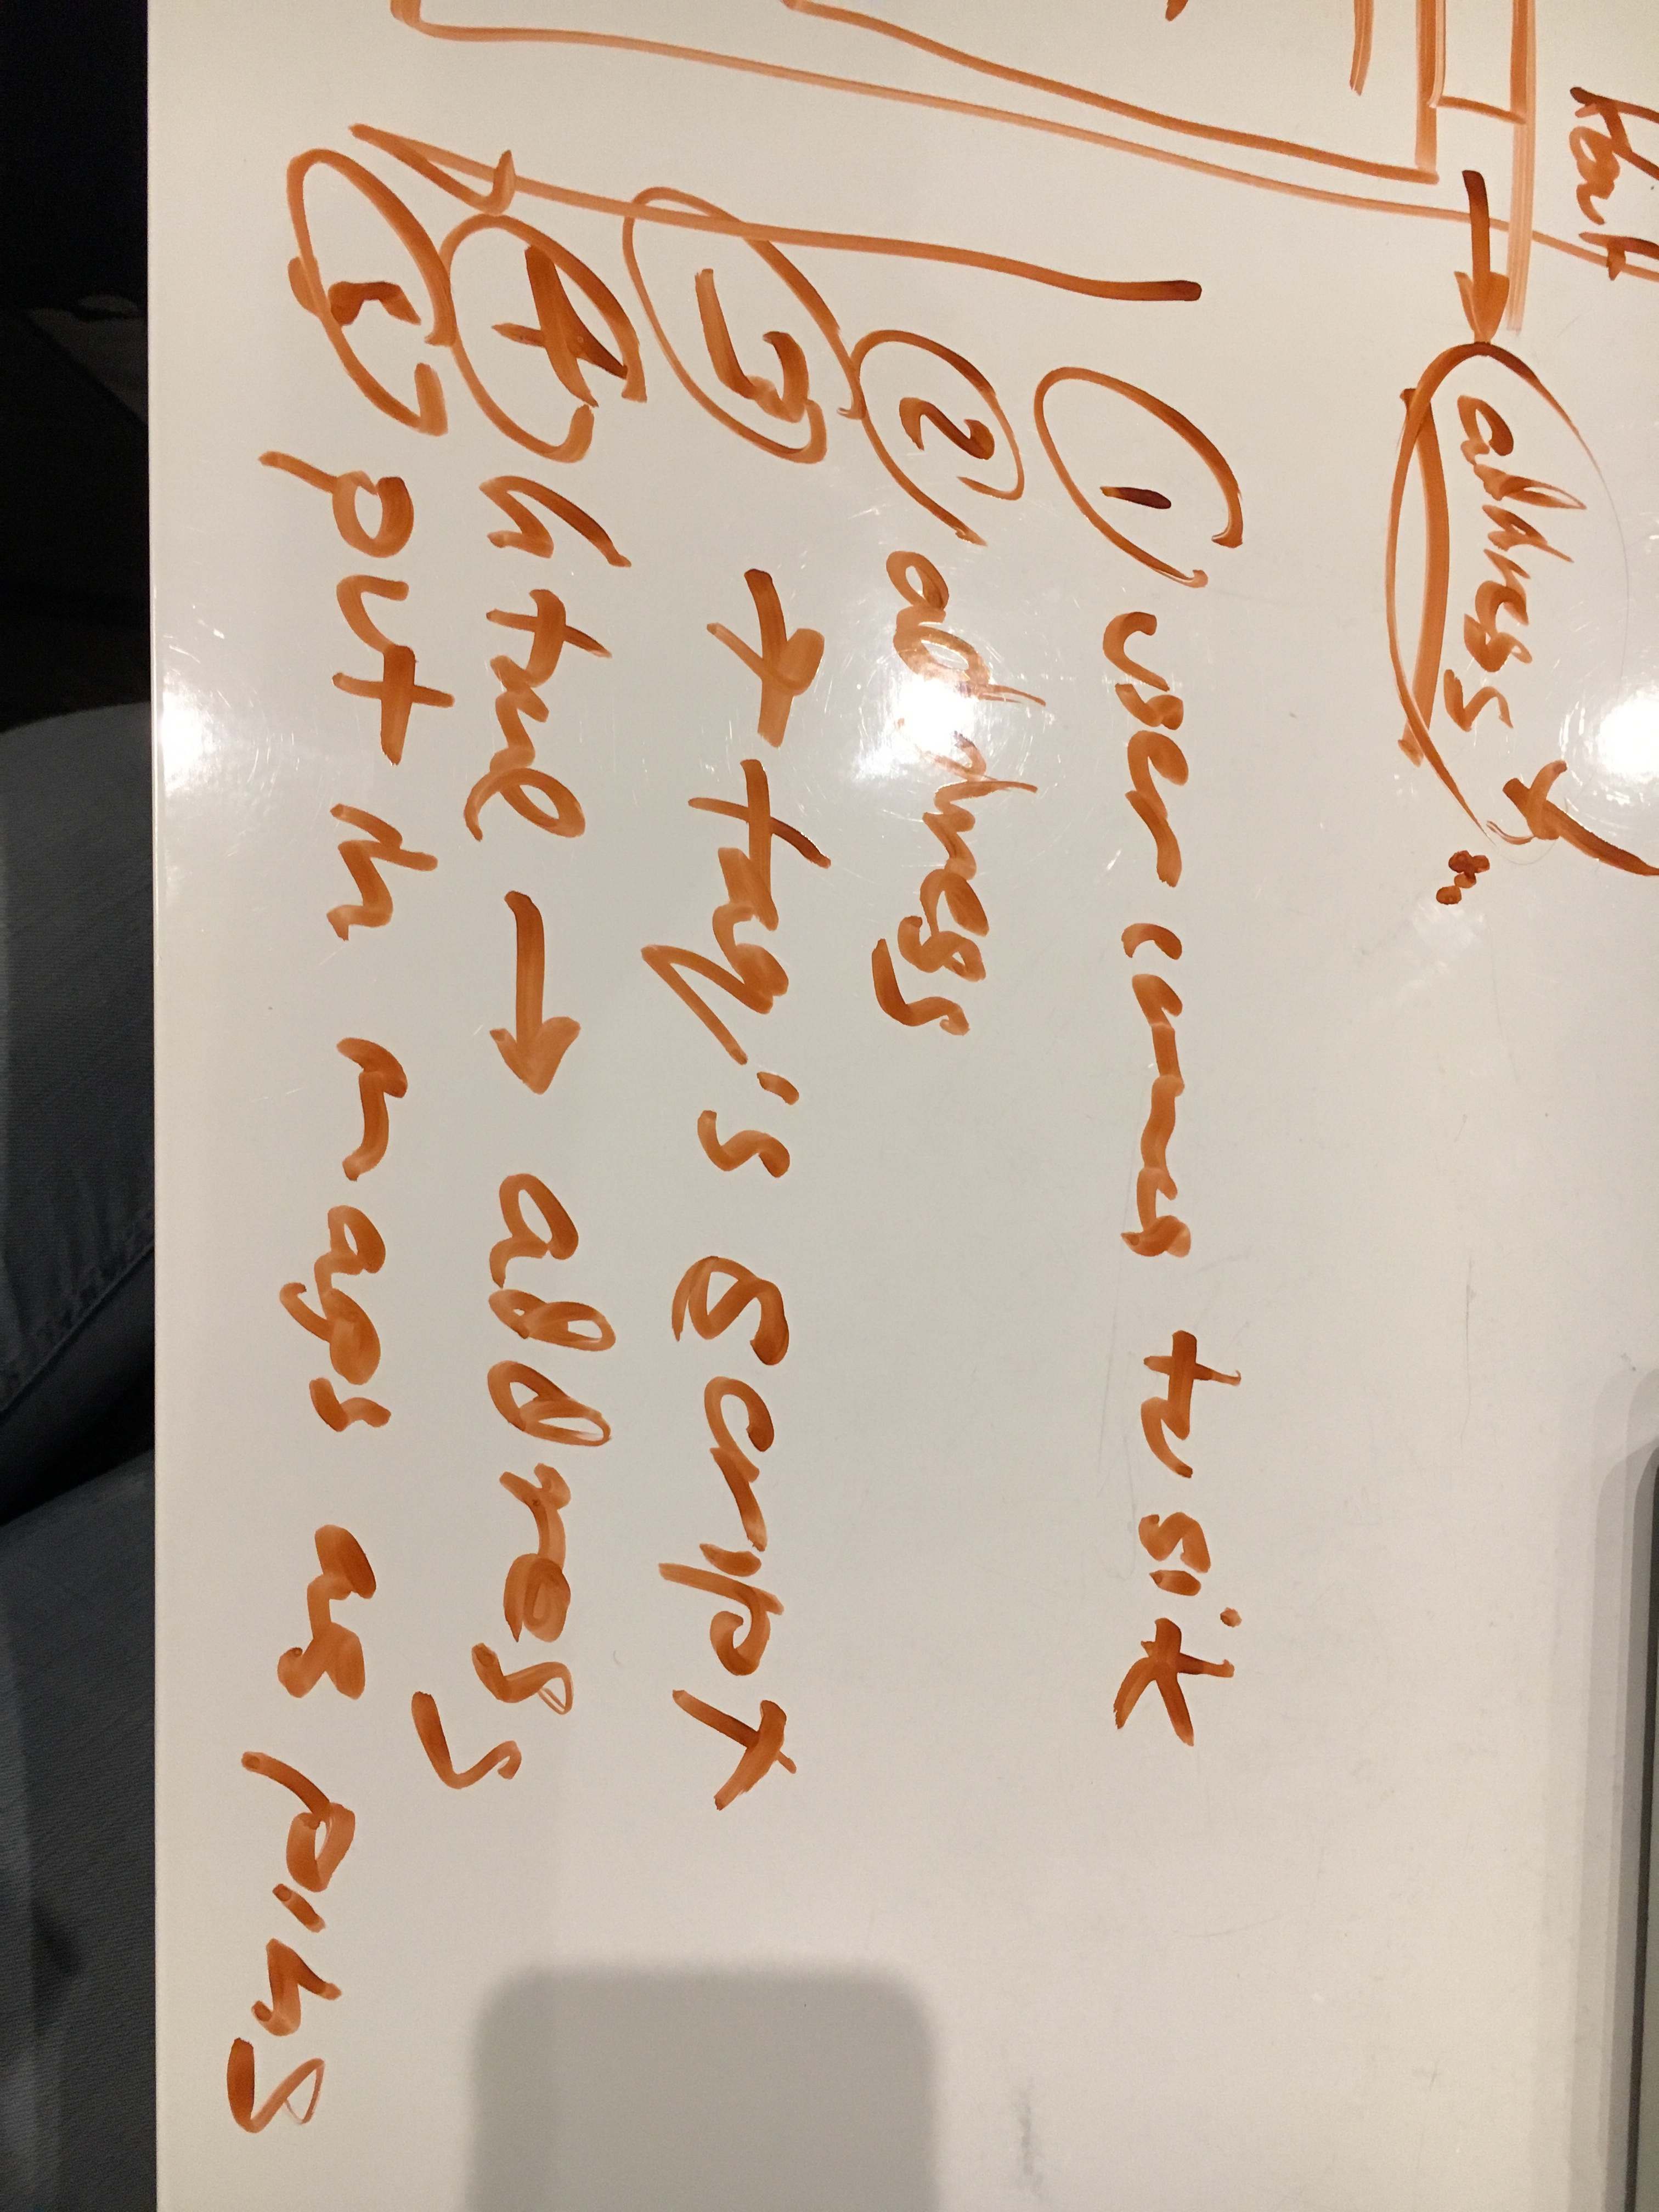 address
① user comes to site
② address
③ → try's script
④ → address
⑤ put in maps as pins